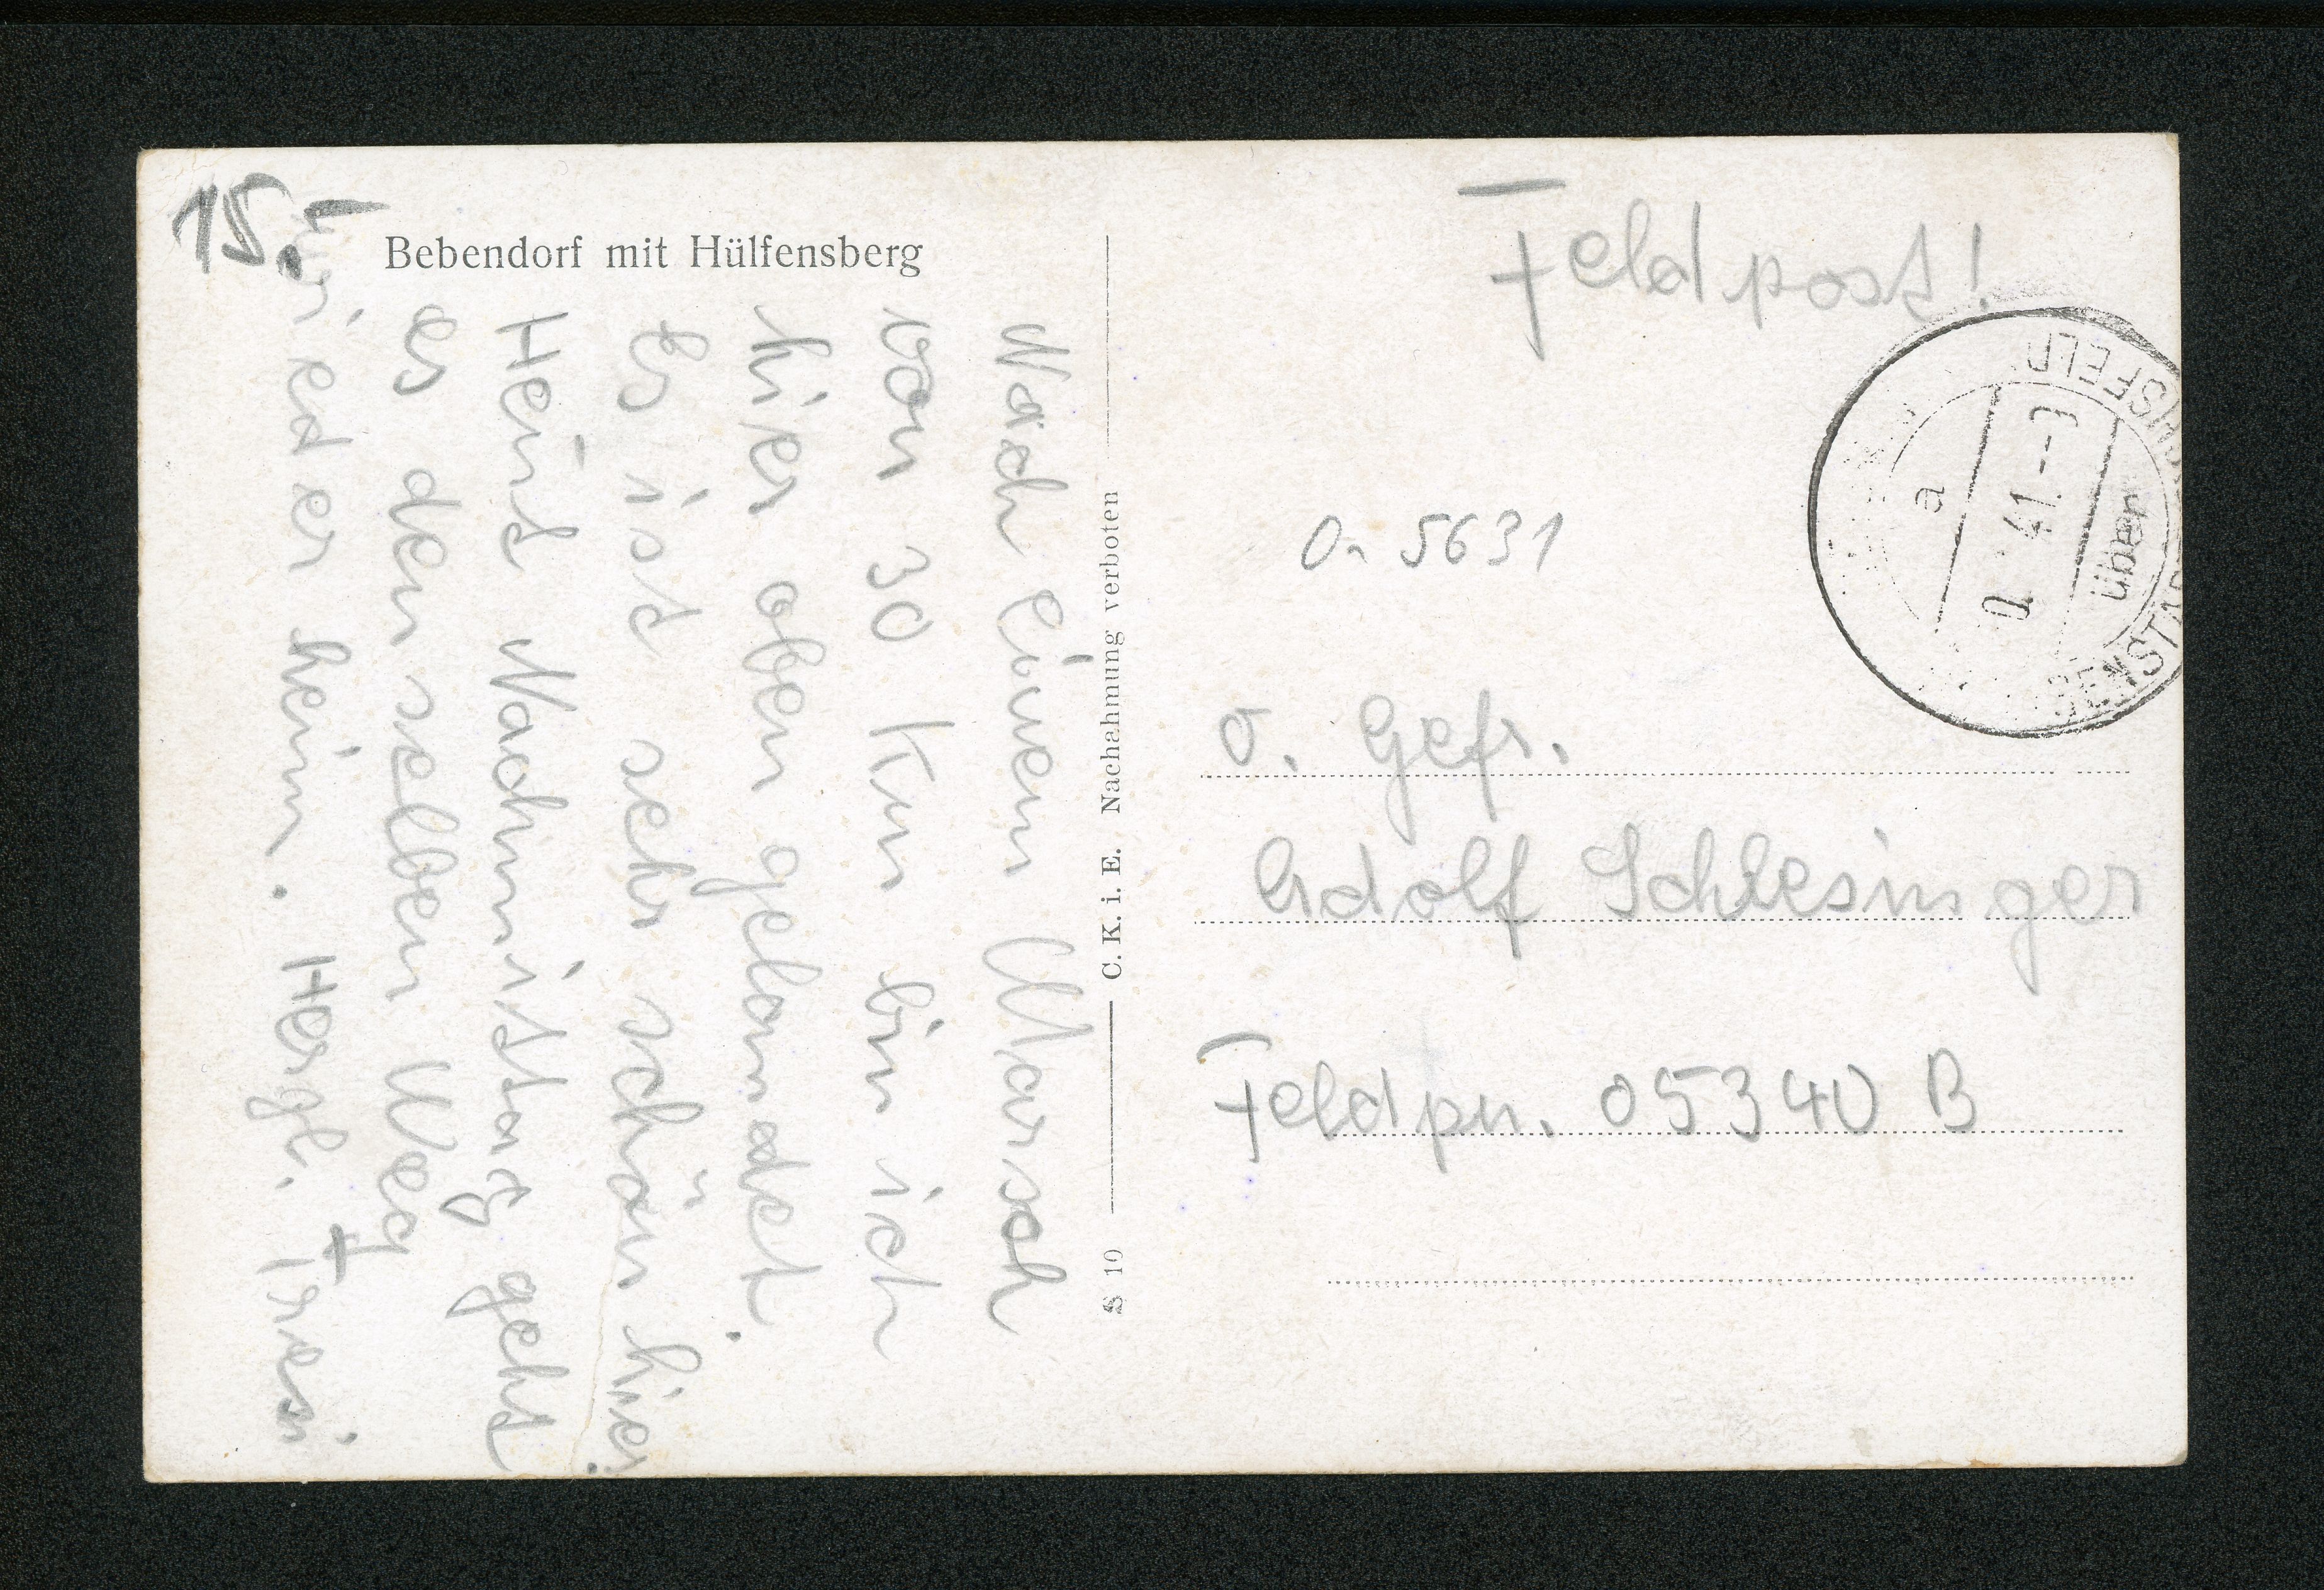 15.-
Bebendorf mit Hülfensberg
Nach einem Marsch
von 30 Km bin ich
hier oben gelandet.
Es ist sehr schön hier.
Heut Nachmittag geht
es den selben Weg
wieder heim. Herzl. Fresi
C. K. i. E. Nachahmung verboten
S 10
Feldpost!
a
41.
über
5631
O. Gefr.
Adolf Schlesinger
Feldpn. 05340 B